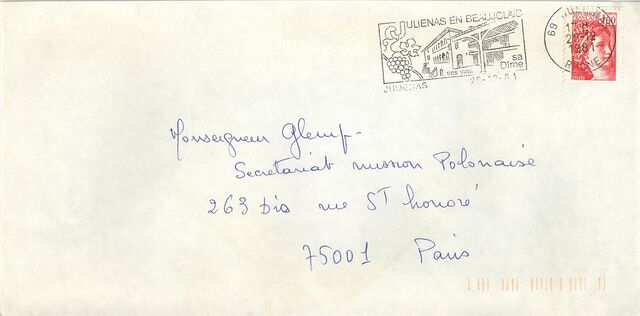 JULIENAS EN BEAUJOLAIS
sa
Dime
ses vins
JULIENAS
28-12-81
69
17 H
28-12
1981
RHONE
1,60
Monseigneur Glemp-
Secretariat mission Polonaise
263 bis rue St honoré
75001 Paris